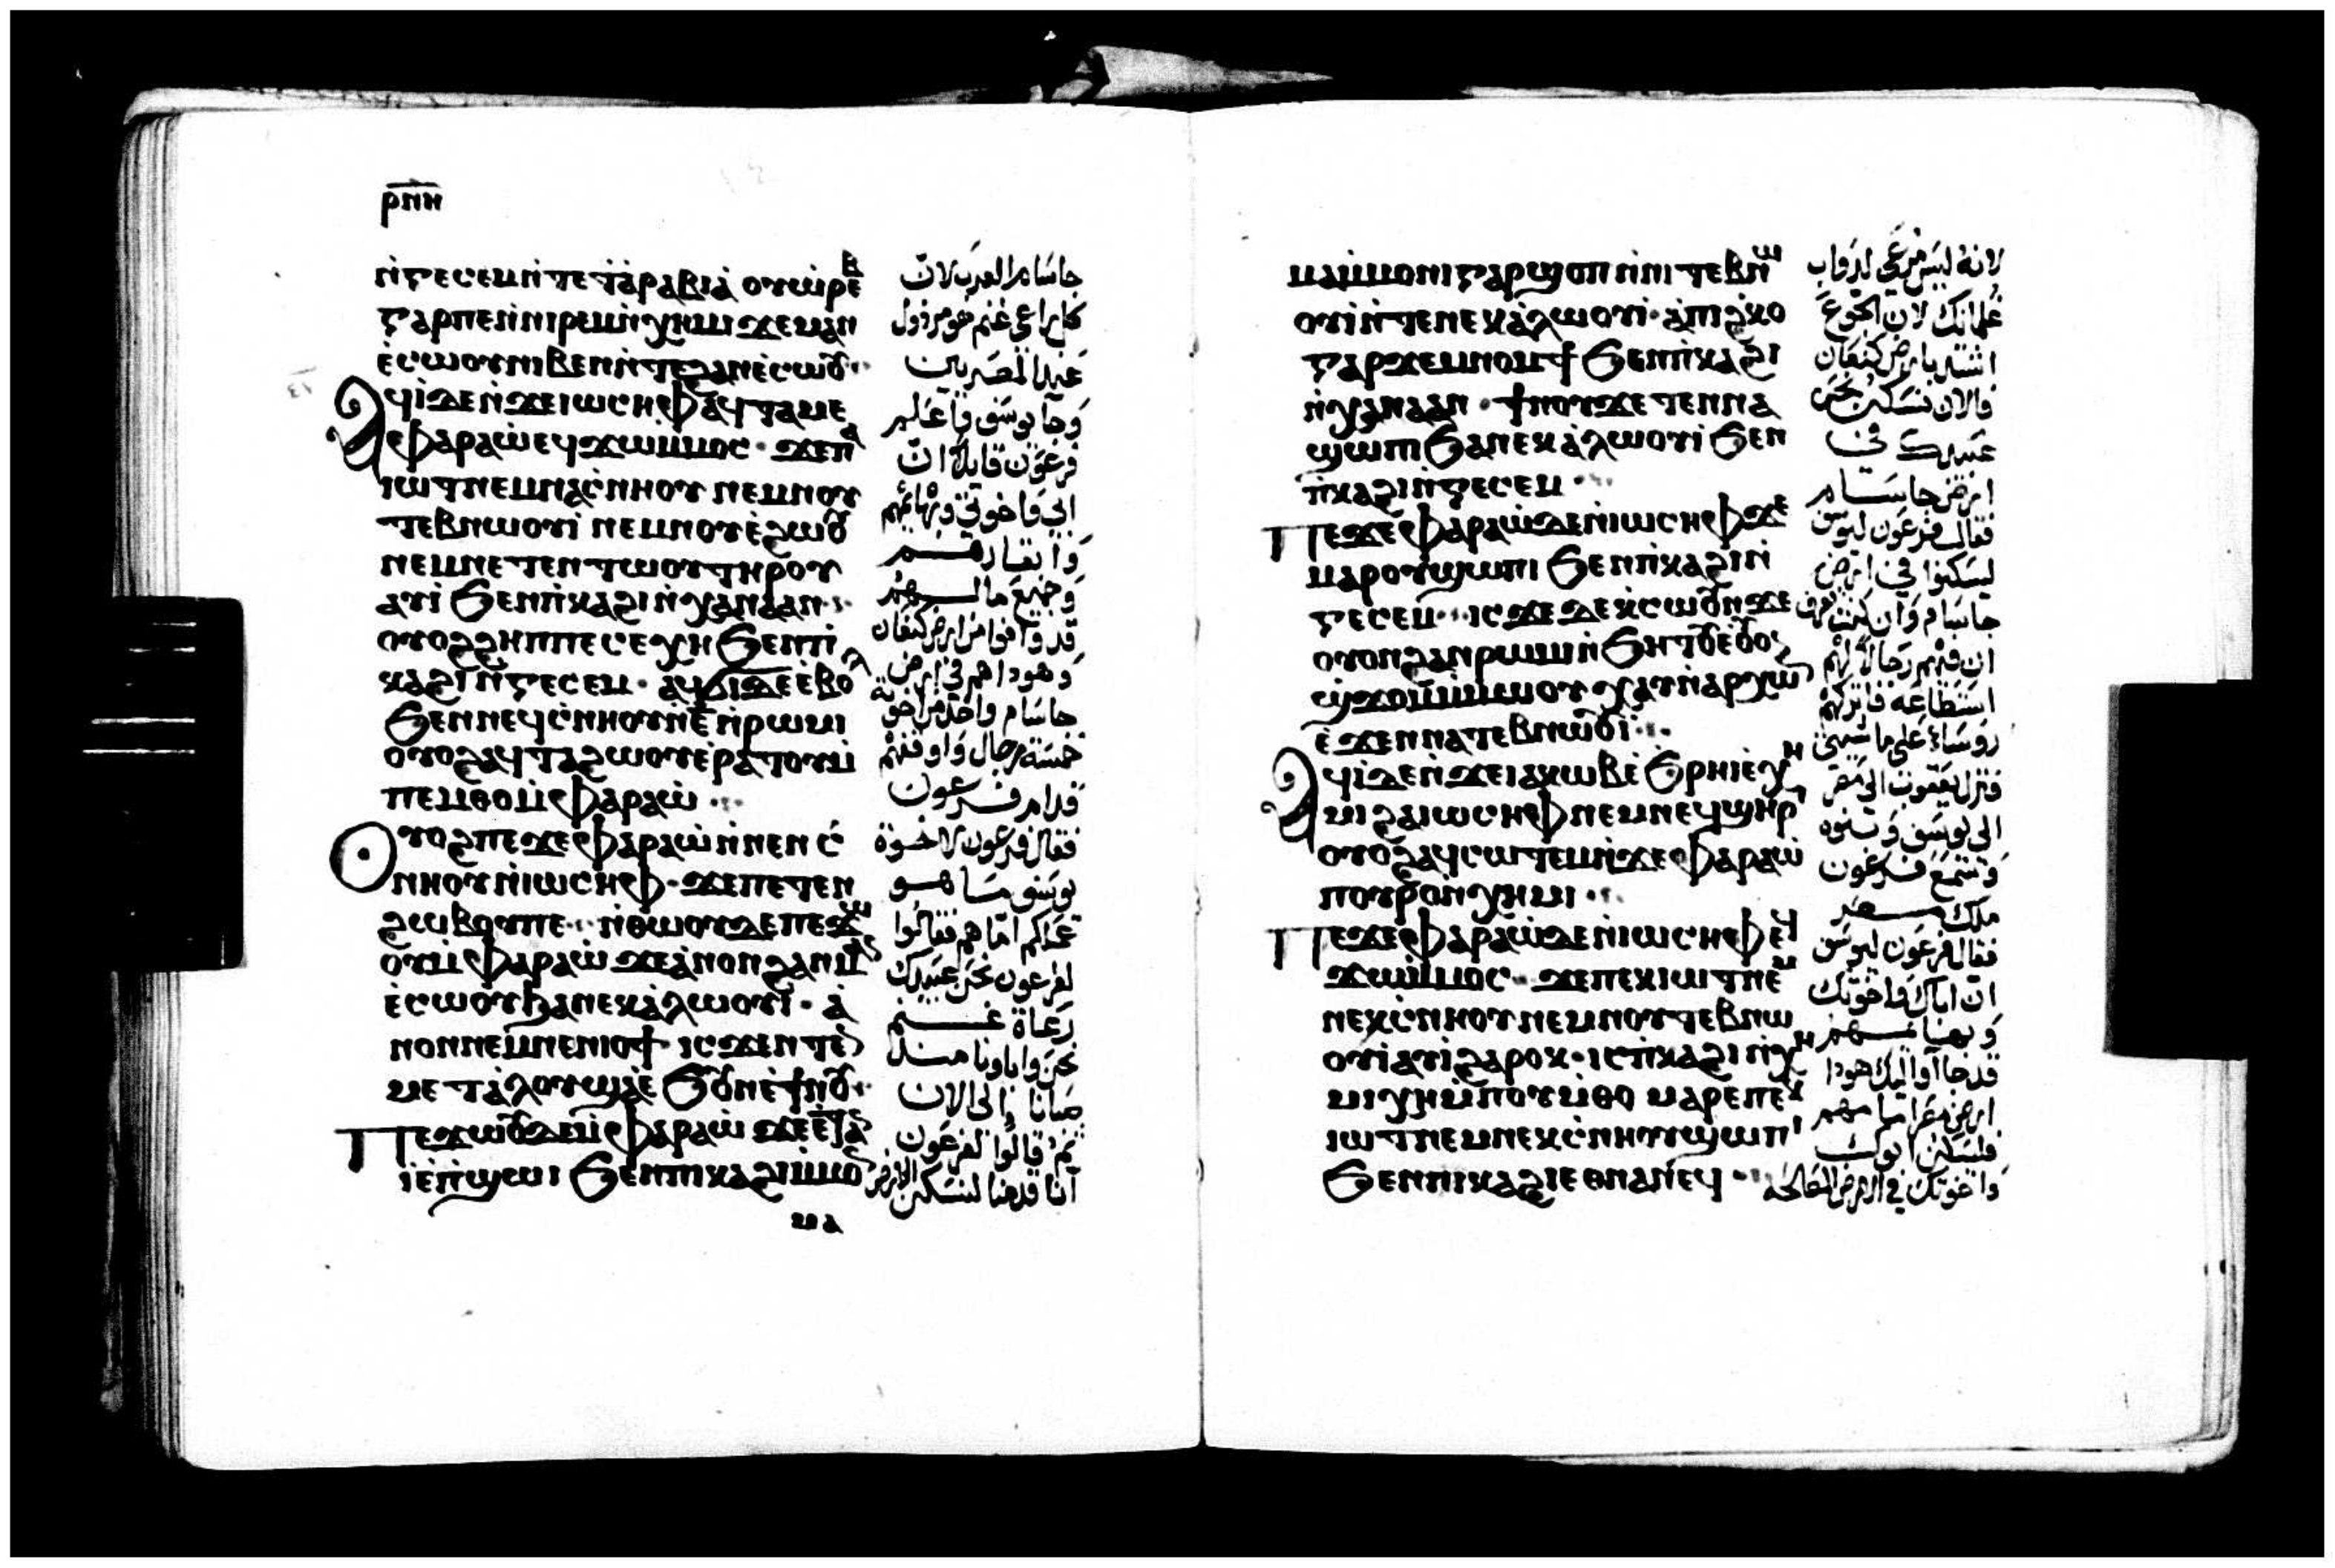 ⲣⲡⲏ
ⲛ̀ⲅⲉⲥⲉⲙ ⲛ̀ⲧⲉ ϯⲁ̀ⲣⲁⲃⲓⲁ̀ ⲟⲩⲱⲣⲉⲃ
ⲅⲁⲣ ⲡⲉ ⲛ̀ⲛⲓⲣⲉⲙⲛ̀ⲭⲏⲙⲓ ϫⲉ ⲙⲁⲛ
ⲉ̀ⲥⲱⲟⲩ ⲛⲓⲃⲉⲛ ⲛ̀ⲧⲉ ϩⲁⲛⲉ̀ⲥⲱⲟⲩ
ⲁϥⲓ̀ ⲇⲉ ⲛ̀ϫⲉ ⲓⲱⲥⲏⲫ ⲁϥⲧⲁⲙⲉ
ⲫⲁⲣⲁⲱ̀ ⲉϥϫⲱ ⲙ̀ⲙⲟⲥ ϫⲉ ⲡⲁ
ⲓⲱⲧ ⲛⲉⲙ ⲛⲁⲥ̀ⲛⲏⲟⲩ ⲛⲉⲙ ⲛⲟⲩ
ⲧⲉⲃⲛⲱⲟⲩⲓ̀ ⲛⲉⲙ ⲛⲟⲩⲉ̀ϩⲱⲟⲩ
ⲛⲉⲙ ⲛⲉⲧⲉⲛⲧⲱⲟⲩ ⲧⲏⲣⲟⲩ
ⲁⲩⲓ̀ ϧⲉⲛ ⲡ̀ⲕⲁϩⲓ ⲛ̀ⲭⲁⲛⲁⲁⲛ
ⲟⲩⲟϩ ϩⲏⲡⲡⲉ ⲥⲉⲭⲏ ϧⲉⲛ ⲡⲓ
ⲕⲁϩⲓ ⲛ̀ⲅⲉⲥⲉⲙ ⲁϥϭⲓ ⲇⲉ ⲉ̀ⲃⲟⲗ
ϧⲉⲛ ⲛⲉϥⲥ̀ⲛⲏⲟⲩ ⲛ̀ⲉ̅ ⲛ̀ⲣⲱⲙⲓ
ⲟⲩⲟϩ ⲁϥⲧⲁϩⲱⲟⲩ ⲉ̀ⲣⲁⲧⲟⲩ ⲙ̀
ⲡⲉⲙⲑⲟ ⲙ̀ⲫⲁⲣⲁⲱ̀
ⲟⲩⲟϩ ⲡⲉϫⲉ ⲫⲁⲣⲁⲱ̀ ⲛ̀ⲛⲉⲛⲥ̀
ⲛⲏⲟⲩ ⲛ̀ⲓⲱⲥⲏⲫ ϫⲉ ⲡⲉⲧⲉⲛ
ϩⲱⲃ ⲟⲩ ⲡⲉ ⲛ̀ⲑⲱⲟⲩ ⲇⲉ ⲡⲉϫⲱ
ⲟⲩ ⲙ̀ⲫⲁⲣⲁⲱ̀ ϫⲉ ⲁ̀ⲛⲟⲛ ϩⲁⲛⲙⲁⲛ
ⲉ̀ⲥⲱⲟⲩ ϧⲁ ⲛⲉⲕⲁ̀ⲗⲱⲟⲩⲓ̀ ⲁ̀
ⲛⲟⲛ ⲛⲉⲙ ⲛⲉⲛⲓⲟϯ ⲓⲥϫⲉⲛ ⲧⲉⲛ
ⲙⲉⲧⲁ̀ⲗⲟⲩ ϣⲁⲉ̀ϧⲟⲩⲛ ⲉ̀ϯⲛⲟⲩ
ⲡⲉϫⲱⲟⲩ ⲇⲉ ⲙ̀ⲫⲁⲣⲁⲱ̀ ϫⲉ ⲉ̀ⲧⲁⲛ
ⲓ̀ ⲉ̀ⲛ̀ϣⲱⲡⲓ ϧⲉⲛ ⲡⲓⲕⲁϩⲓ ⲙ̀ⲙⲟⲛ
ⲙⲁ
جاسام العرب لان
كل راعي غنم هو مرذول
عند المصريين
وجا يوسف فاعلم
فرعون قايلا ان
ابي واخوتي وبهائمهم
وابقارهم
وجميع مالهم
قد وافوا من ارض كنعان
وهوذا هم في ارض
جاسام واخذ من اخوته
خمسة رجال واوقفهم
قدام فرعون
فقال فرعون لاخوة
يوسف ما هو
عملكم اما هم فقالوا
لفرعون نحن عبيدك
رعاة غنم
نحن واباونا منذ
صبانا والى الان
ثم قالوا لفرعون
اننا قدمنا لنسكن الارض
ⲙⲁⲙ̀ⲙⲟⲛⲓ ⲅⲁⲣ ϣⲟⲡ ⲛ̀ⲛⲓⲧⲉⲃⲛⲱ
ⲟⲩⲓ̀ ⲛ̀ⲧⲉ ⲛⲉⲕⲁ̀ⲗⲱⲟⲩⲓ̀ ⲁ̀ⲡⲓϩ̀ⲕⲟ
ⲅⲁⲣ ϫⲉⲙⲛⲟⲙϯ ϧⲉⲛ ⲡ̀ⲕⲁϩⲓ
ⲛ̀ⲭⲁⲛⲁⲁⲛ ϯⲛⲟⲩ ϫⲉ ⲧⲉⲛⲛⲁ
ϣⲱⲡⲓ ϧⲁ ⲛⲉⲕⲁ̀ⲗⲱⲟⲩⲓ̀ ϧⲉⲛ
ⲡ̀ⲕⲁϩⲓ ⲛ̀ⲅⲉⲥⲉⲙ
ⲡⲉϫⲉ ⲫⲁⲣⲁⲱ̀ ⲇⲉ ⲛ̀ⲓⲱⲥⲏⲫ ϫⲉ
ⲙⲁⲣⲟⲩϣⲱⲡⲓ ϧⲉⲛ ⲡ̀ⲕⲁϩⲓ ⲛ̀
ⲅⲉⲥⲉⲙ ⲓⲥϫⲉ ⲇⲉ ⲕ̀ⲥⲱⲟⲩⲛ ϫⲉ
ⲟⲩⲟⲛ ϩⲁⲛⲣⲱⲙⲓ ⲛ̀ϧⲏⲧⲟⲩ ⲉ̀ⲟⲩⲟⲛ
ϣ̀ϫⲟⲙ ⲙ̀ⲙⲱⲟⲩ ⲭⲁⲩ ⲛ̀ⲁⲣⲭⲱⲛ
ⲉ̀ϫⲉⲛ ⲛⲁⲧⲉⲃⲛⲱⲟⲩⲓ̀
ⲁϥⲓ̀ ⲇⲉ ⲛ̀ϫⲉ ⲓⲁⲕⲱⲃ ⲉ̀ϧⲣⲏⲓ ⲉ̀ⲭⲏ
ⲙⲓ ϩⲁ ⲓⲱⲥⲏⲫ ⲛⲉⲙ ⲛⲉϥϣⲏⲣⲓ
ⲟⲩⲟϩ ⲁϥⲥⲱⲧⲉⲙ ⲛ̀ϫⲉ ⲫⲁⲣⲁⲱ̀
ⲡⲟⲩⲣⲟ ⲛ̀ⲭⲏⲙⲓ
ⲡⲉϫⲉ ⲫⲁⲣⲁⲱ̀ ⲇⲉ ⲛ̀ⲓⲱⲥⲏⲫ ⲉϥ
ϫⲱ ⲙ̀ⲙⲟⲥ ϫⲉ ⲡⲉⲕⲓⲱⲧ ⲛⲉⲙ
ⲛⲉⲕⲥ̀ⲛⲏⲟⲩ ⲛⲉⲙ ⲛⲟⲩⲧⲉⲃⲛⲱ
ⲟⲩⲓ̀ ⲁⲩⲓ̀ ϩⲁⲣⲟⲕ ⲓⲥ ⲡ̀ⲕⲁϩⲓ ⲛ̀ⲭⲏ
ⲙⲓ ⲭⲏ ⲙ̀ⲡⲟⲩⲙ̀ⲑⲟ ⲙⲁⲣⲉ ⲡⲉⲕ
ⲓⲱⲧ ⲛⲉⲙ ⲛⲉⲕⲥ̀ⲛⲏⲟⲩ ϣⲱⲡⲓ
ϧⲉⲛ ⲡⲓⲕⲁϩⲓ ⲉⲑⲛⲁⲛⲉϥ
لانه ليس مرعى لدواب
غلمانك لان الجوع
اشتد بارض كنعان
فالان نسكن نحن
عبيدك في
ارض جاسام
فقال فرعون ليوسف
ليسكنوا في ارض
جاسام وان كنت تعرف
ان فيهم رجالا لهم
استطاعة فاتركهم
روساء على ماشيتي
فنزل يعقوب الى مصر
الى يوسف وبنوه
وسمع فرعون
ملك مصر
فقال فرعون ليوسف
ان اباك واخوتك
وبهائمهم
قد جاوا اليك هوذا
ارض مصر امامهم
فليسكن ابوك
واخوتك في الارض الصالحة